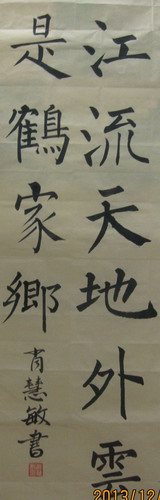 江流天地外雲
是鶴家鄉
肖慧敏書
2013/12/